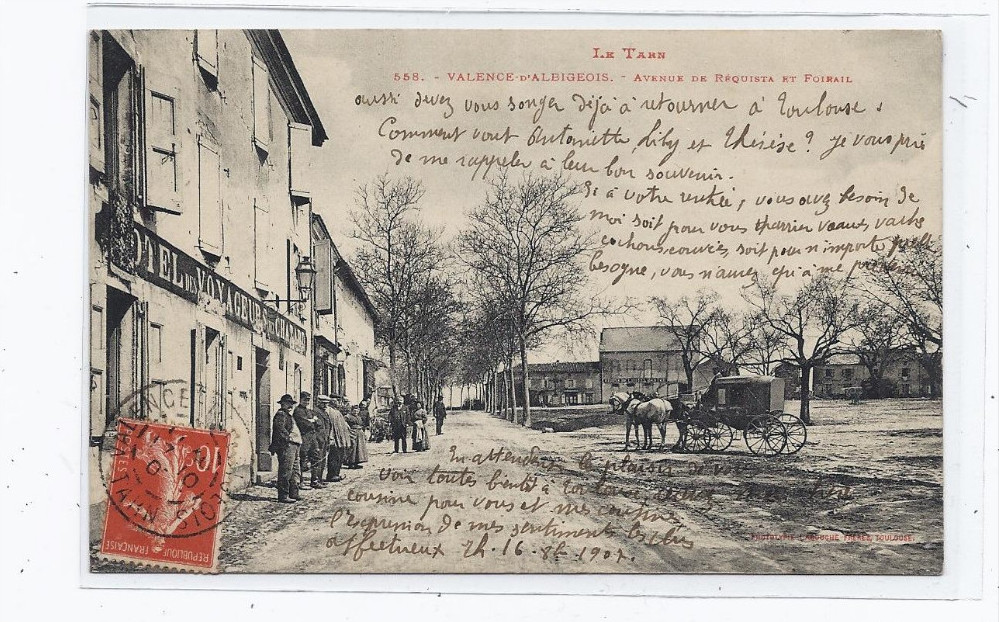 LE TARN
558. - VALENCE-D'ALBIGEOIS. - AVENUE DE RÉQUISTA ET FOIRAIL
aussi devez vous songer déjà à retourner à Toulouse.
Comment vont Antoinette, Liby et Thérèse? Je vous prie
de me rappeler à leur bon souvenir.
Si à votre rentrée, vous avez besoin de
moi soit pour vous charrier veaux, vache
cochons couvées, soit pour n'importe quelle
besogne, vous n'aurez qu'à me
HÔTEL DES VOYAGEURS
10c
RÉPUBLIQUE FRANÇAISE
POSTES
VALENCE
TARN
En attendant le plaisir de vous
voir toutes bientôt à Toulouse,
cousine pour vous et mes cousines
l'expression de mes sentiments les plus
affectueux Th. 16-8bre 1907.
PHOTOTYPIE LABOUCHE FRÈRES, TOULOUSE.